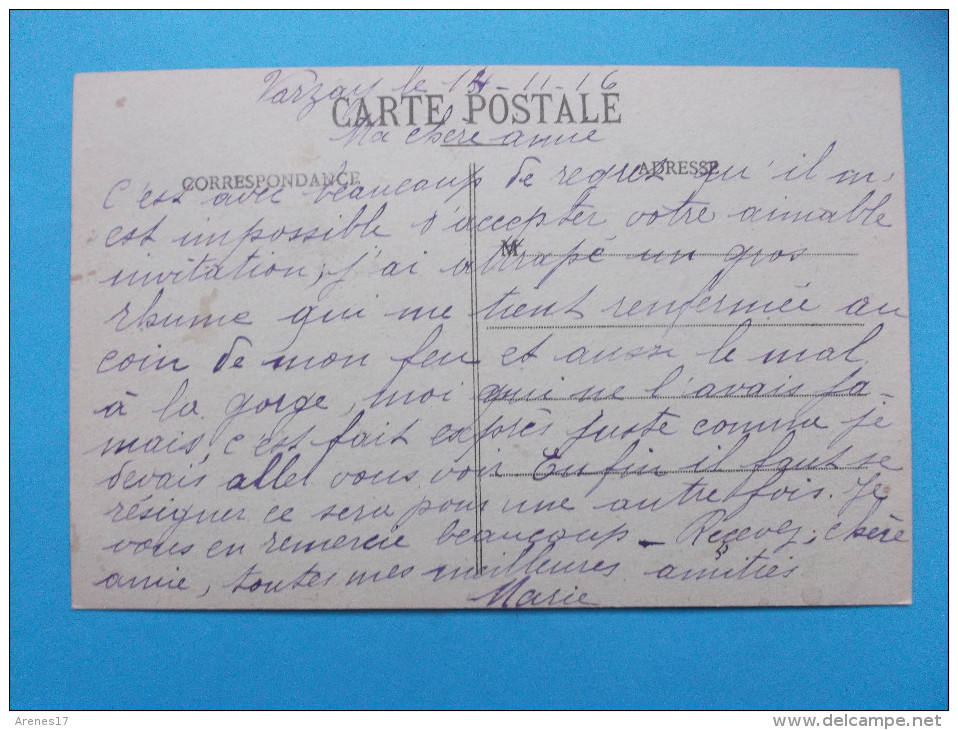 Varzay le 14-11-16
CARTE POSTALE
Ma chère amie
CORRESPONDANCE
ADRESSE
C'est avec beaucoup de regret qu'il m'
est impossible d'accepter votre aimable
M
invitation, j'ai attrapé un gros
rhume qui me tient renfermée au
coin de mon feu et aussi le mal
à la gorge, moi qui ne l'avais ja-
mais, c'est fait exprès juste comme je
devais aller vous voir Enfin il faut se
résigner ce sera pour une autre fois. Je
vous en remercie beaucoup - Recevez, chère
amie, toutes mes meilleures amitiés
Marie
Arenes17
http://www.delcampe.net